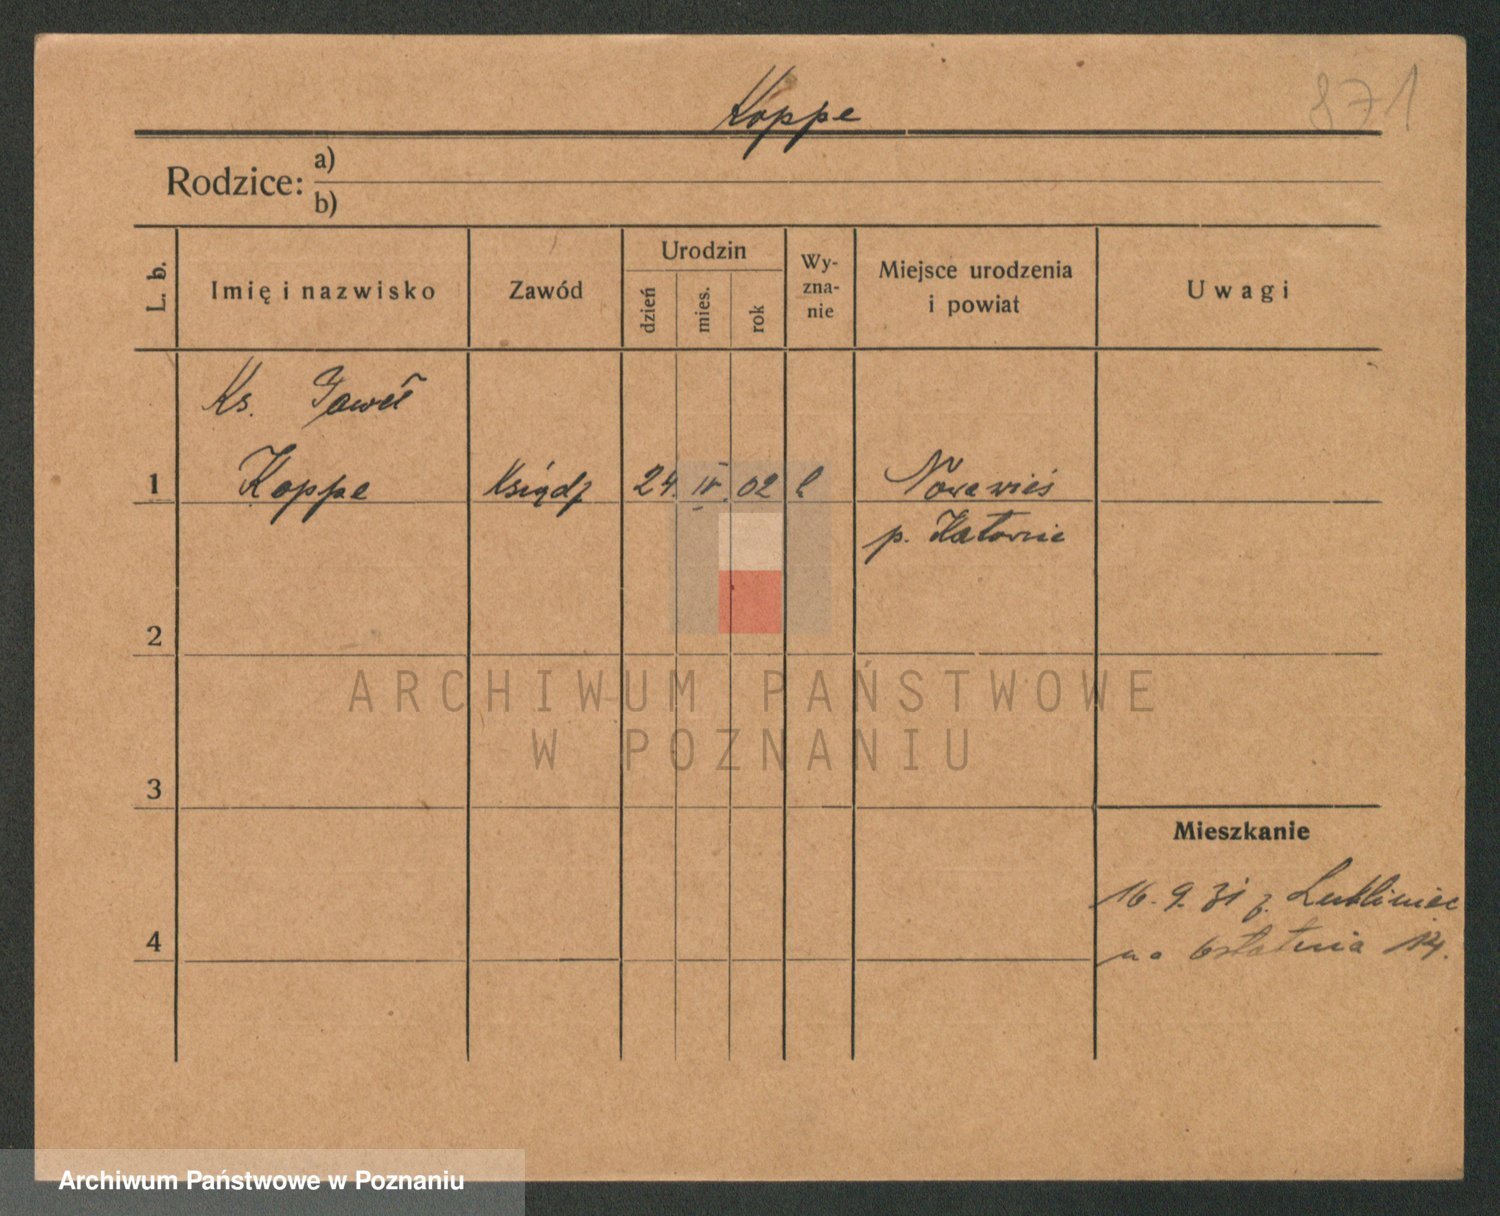 871
Koppe
Rodzice: a)
b)
L. b.
Imię i nazwisko
Zawód
Urodzin
dzień
mies.
rok
Wy-
zna-
nie
Miejsce urodzenia
i powiat
Uwagi
Ks. Paweł
1 Koppe Ksiądz 24. IV. 02 Nowawieś
p. Katowic
2
3
4
Mieszkanie
16. 9. 31 z Lubliniec
na Ostatnia 14.
ARCHIWUM PAŃSTWOWE
W POZNANIU
Archiwum Państwowe w Poznaniu